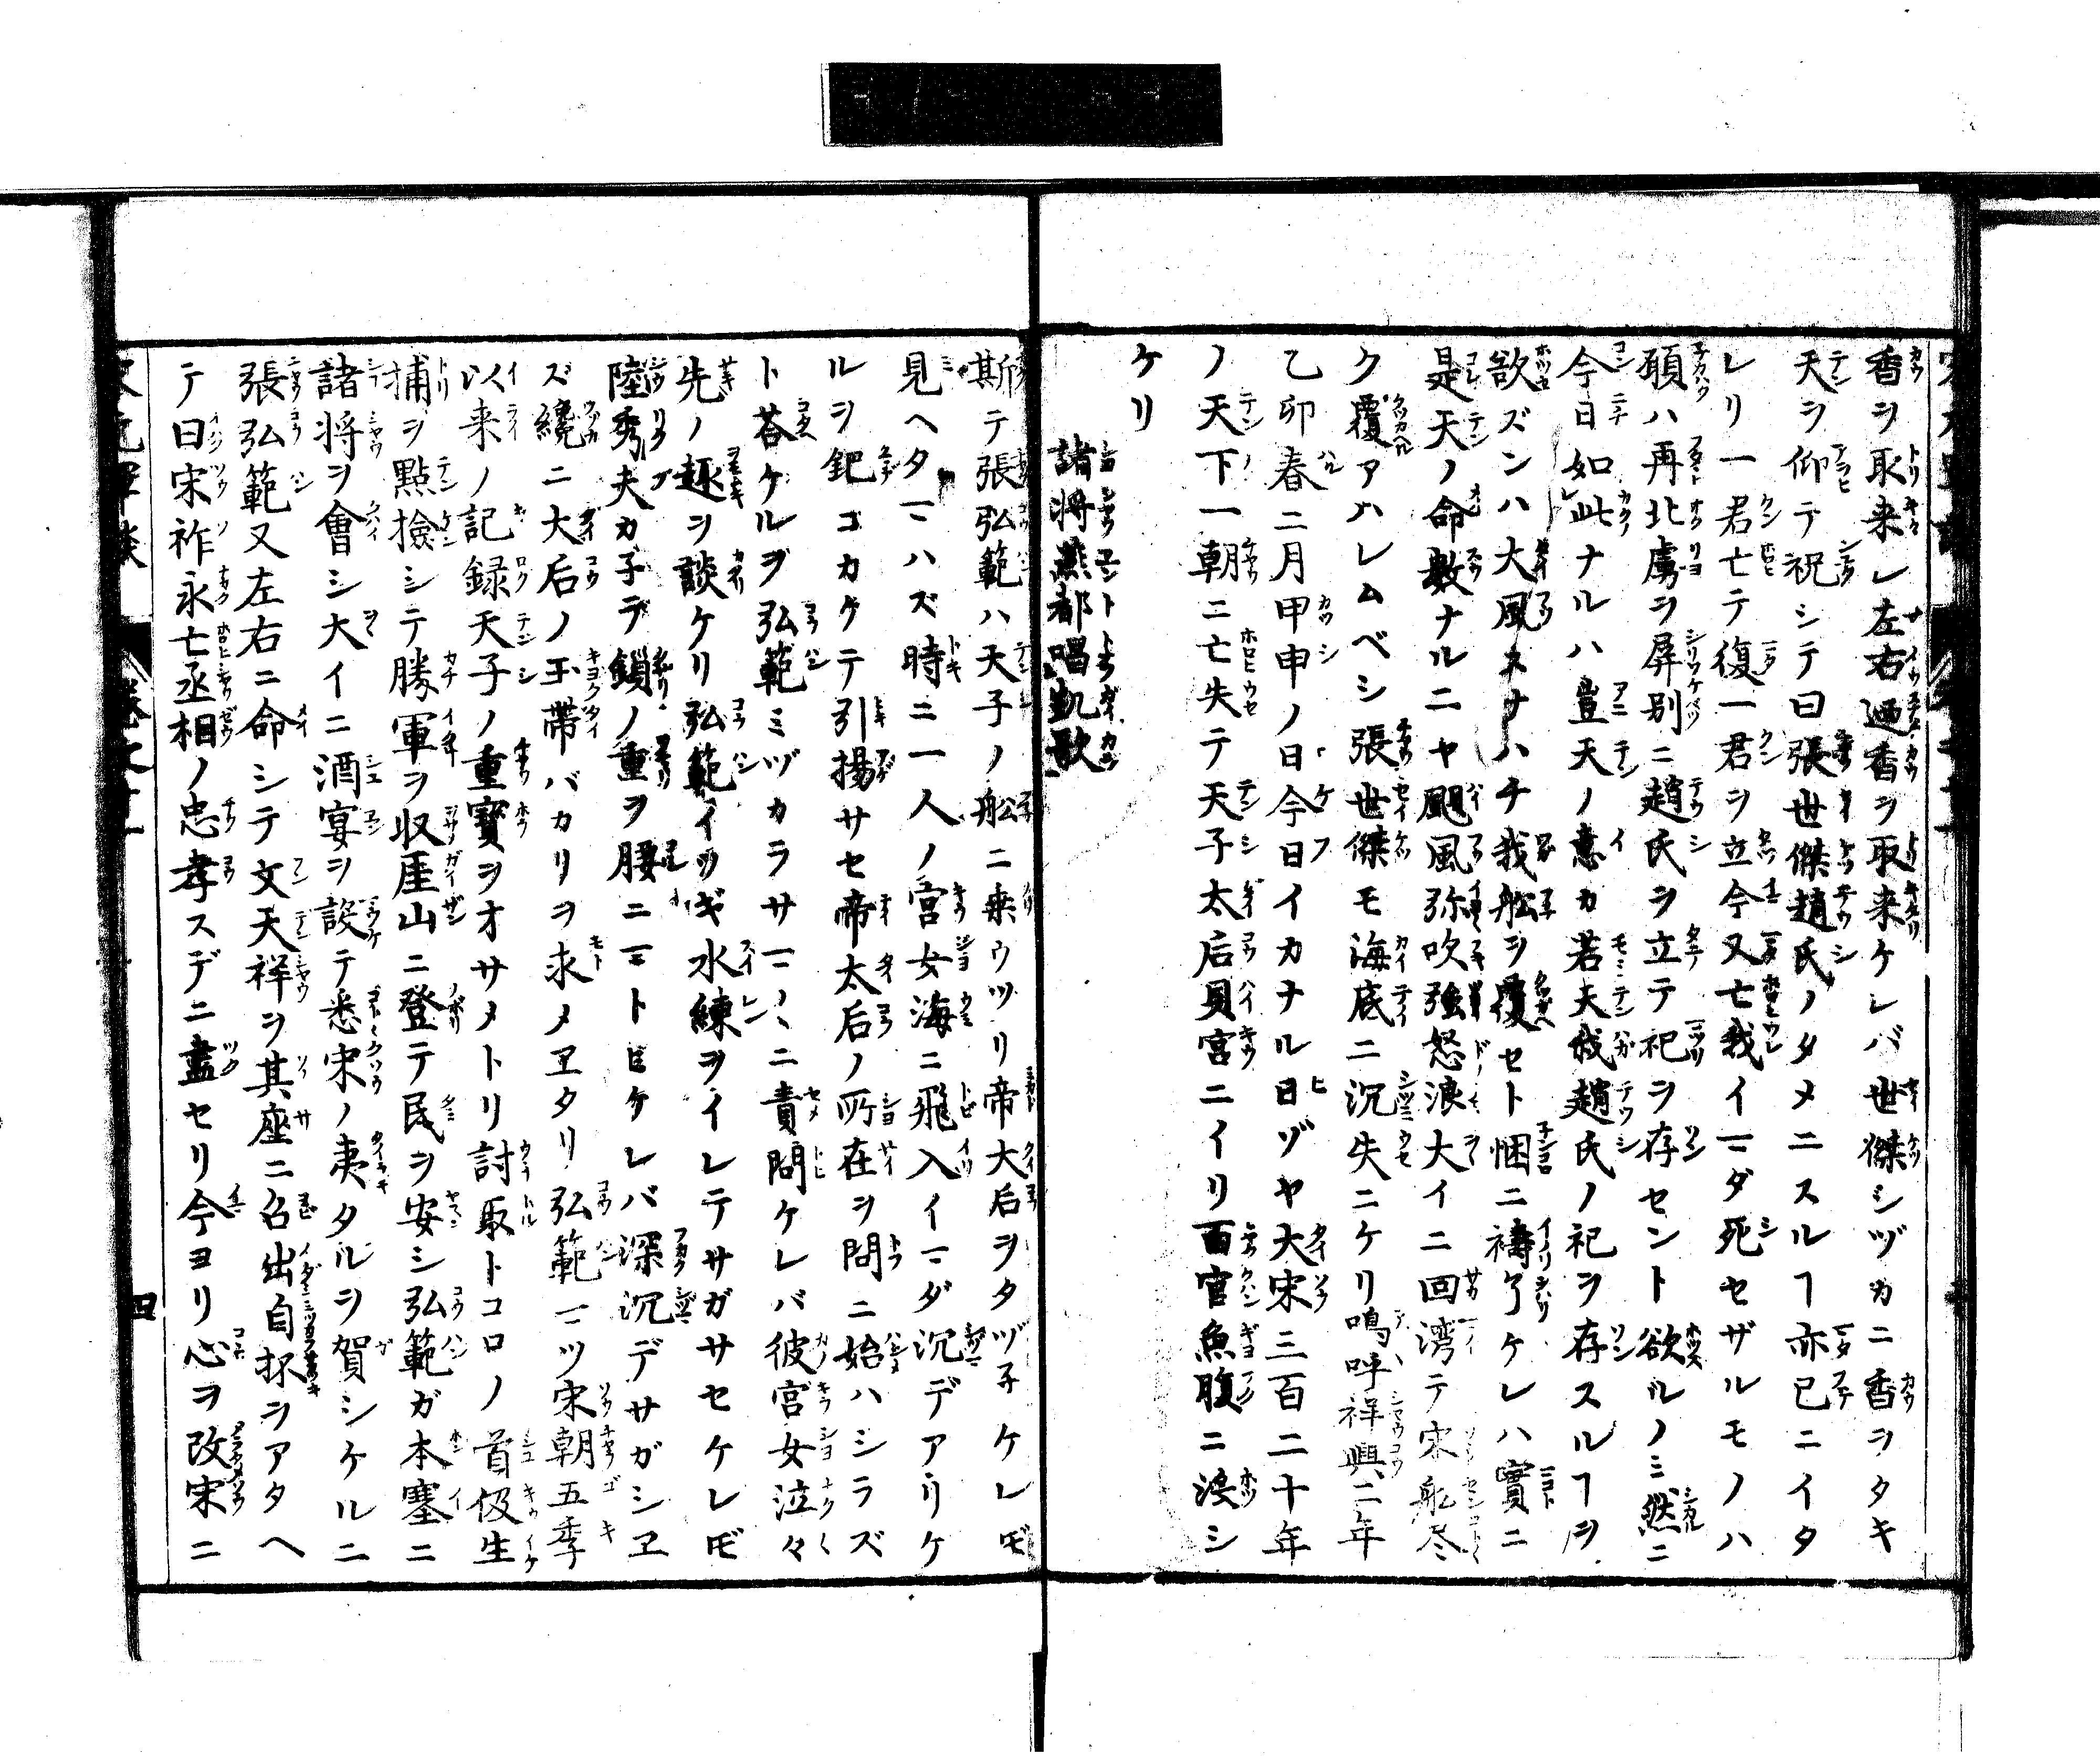 香ヲ取来レ左右迺香ヲ取来ケレバ世傑シヅカニ香ヲタキ
天ヲ仰テ祝シテ曰張世傑趙氏ノタメニスルヿ亦已ニイタ
レリ一君亡テ復一君ヲ立今又亡我イマダ死セザルモノハ
願ハ再北虜ヲ屏別ニ趙氏ヲ立テ祀ヲ存セント欲ルノミ然ニ
今日如此ナルハ豈天ノ意カ若天我趙氏ノ祀ヲ存スルヿヲ
欲ズンハ大風スナハチ我舩ヲ覆セト悃ニ禱了ケレハ實ニ
是天ノ命數ナルニヤ颶風弥吹強怒浪大イニ回湾テ宋舩尽
ク覆アハレムベシ張世傑モ海底ニ沉失ニケリ嗚呼祥興二年
乙卯春二月甲申ノ日今日イカナル日ゾヤ大宋三百二十年
ノ天下一朝ニ亡失テ天子太后貝宮ニイリ百官魚腹ニ浸シ
ケリ
諸将燕都唱凱歌
斯テ張弘範ハ天子ノ舩ニ乗ウツリ帝大后ヲタヅ子ケレ𪜈
見ヘタマハズ時ニ一人ノ宮女海ニ飛入イマダ沉デアリケ
ルヲ鈀ゴカケテ引揚サセ帝太后ノ所在ヲ問ニ始ハシラズ
ト荅ケルヲ弘範ミヅカラサマ〱ニ責問ケレバ彼宮女泣々
先ノ趣ヲ談ケリ弘範イソギ水練ヲイレテサガサセケレ𪜈
陸秀夫カ子デ鎖ノ重ヲ腰ニマトヒケレバ深沉デサガシヱ
ズ纔ニ大后ノ玉帶バカリヲ求メヱタリ弘範マヅ宋朝五季
以来ノ記録天子ノ重寳ヲオサメトリ討取トコロノ首伋生
捕ヲ點撿シテ勝軍ヲ収厓山ニ登テ民ヲ安シ弘範ガ本塞ニ
諸将ヲ會シ大イニ酒宴ヲ設テ悉宋ノ夷タルヲ賀シケルニ
張弘範又左右ニ命シテ文天祥ヲ其座ニ召出自抔ヲアタヘ
テ曰宋祚永亡丞相ノ忠孝スデニ盡セリ今ヨリ心ヲ改宋ニ
四